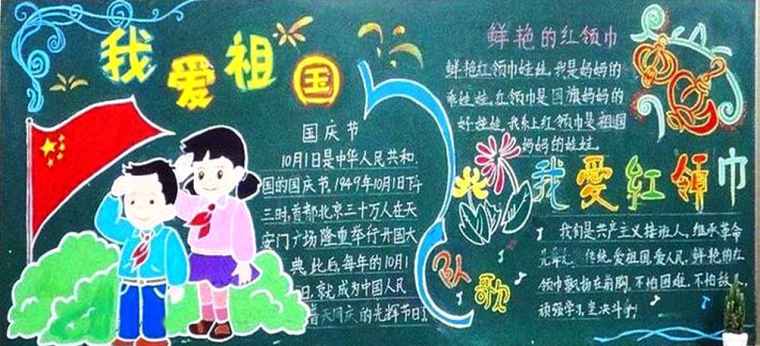 我爱祖国
国庆节
10月1日是中华人民共和
国的国庆节,1949年10月1日下午
三时,首都北京三十万人在天
安门广场隆重举行开国大
典,此后,每年的10月1
日,就成为中国人民
普天同庆的光辉节日
鲜艳的红领巾
鲜艳红领巾娃娃,我是妈妈的
乖娃娃,红领巾是国旗妈妈的
好娃娃,我系上红领巾是祖国
妈妈的娃娃
我爱红领巾
队歌
我们是共产主义接班人,继承革命
先辈 传统,爱祖国,爱人民,鲜艳的红
领巾飘扬在前胸,不怕困难,不怕敌人,
顽强学习,坚决斗争!